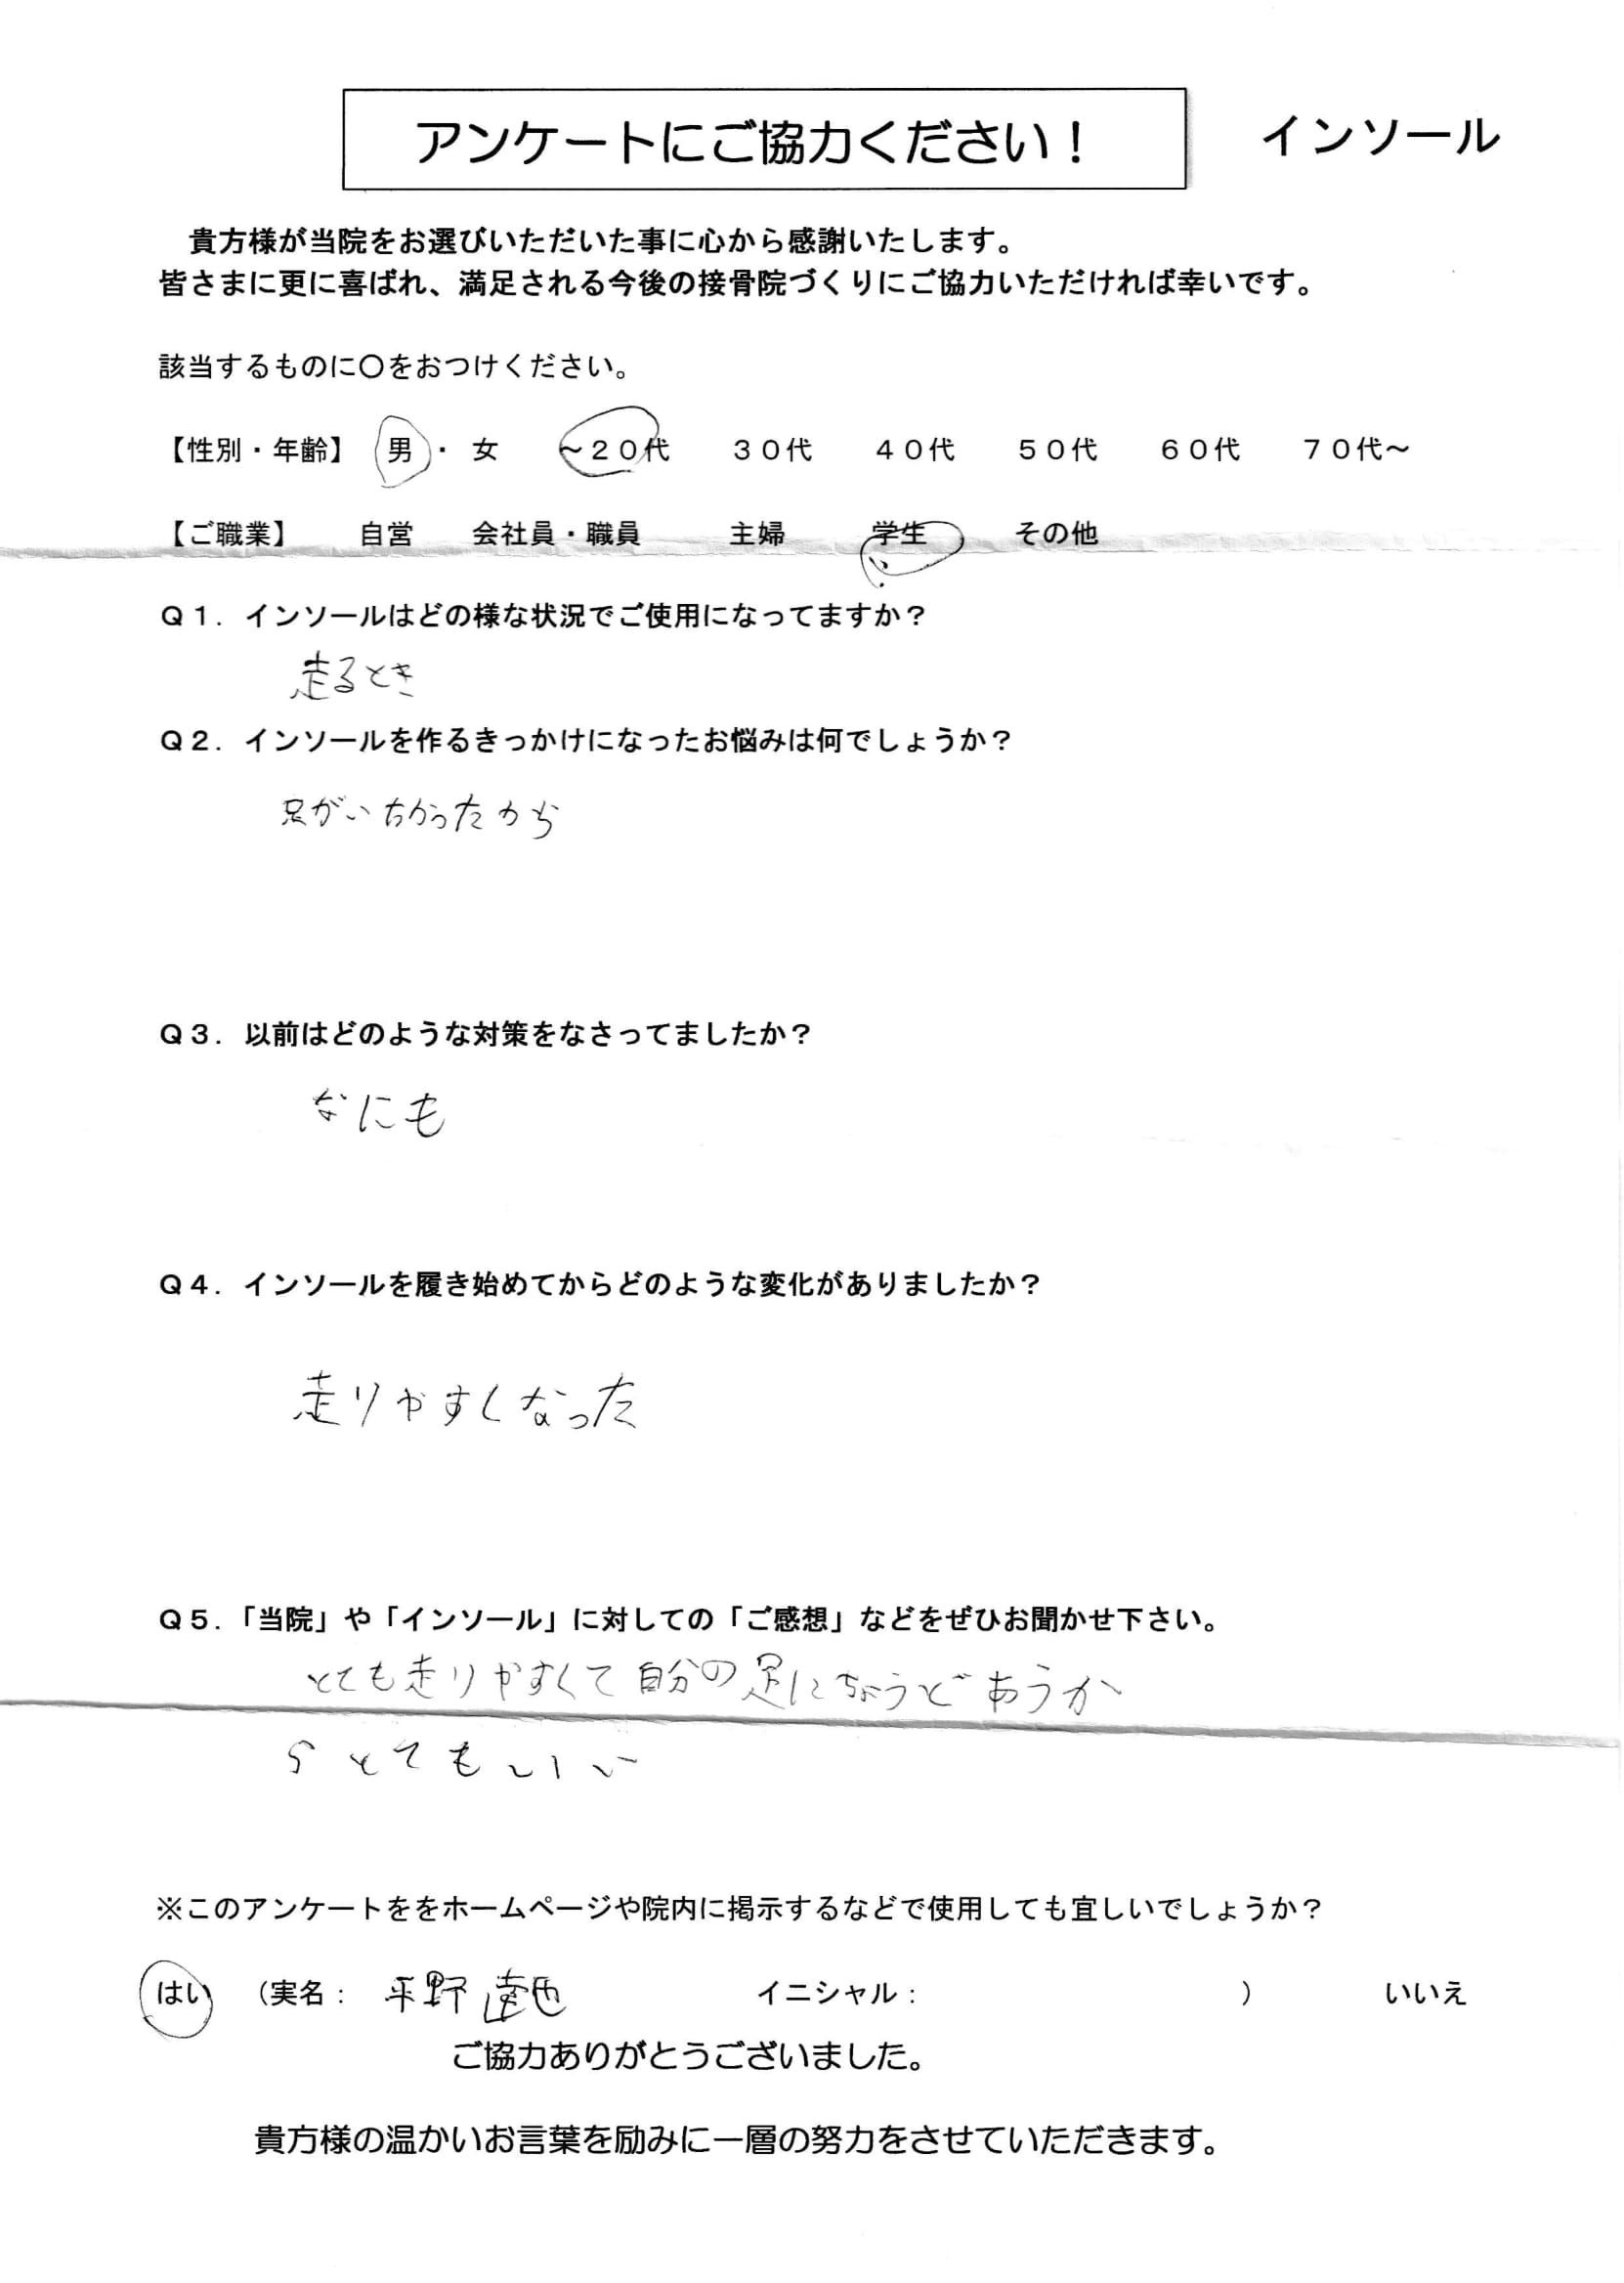 アンケートにご協力ください！
インソール
貴方様が当院をお選びいただいた事に心から感謝いたします。
皆さまに更に喜ばれ、満足される今後の接骨院づくりにご協力いただければ幸いです。
該当するものに〇をおつけください。
【性別・年齢】 男 ・ 女 ～２０代 ３０代 ４０代 ５０代 ６０代 ７０代～
【ご職業】 自営 会社員・職員 主婦 学生 その他
Ｑ１．インソールはどの様な状況でご使用になってますか？
走るとき
Ｑ２．インソールを作るきっかけになったお悩みは何でしょうか？
足がいたかったから
Ｑ３．以前はどのような対策をなさってましたか？
なにも
Ｑ４．インソールを履き始めてからどのような変化がありましたか？
走りやすくなった
Ｑ５．「当院」や「インソール」に対しての「ご感想」などをぜひお聞かせ下さい。
とても走りやすくて自分の足にちょうどあうか
らとてもいい
※このアンケートををホームページや院内に掲示するなどで使用しても宜しいでしょうか？
はい （実名： 平野 達也 イニシャル： ） いいえ
ご協力ありがとうございました。
貴方様の温かいお言葉を励みに一層の努力をさせていただきます。